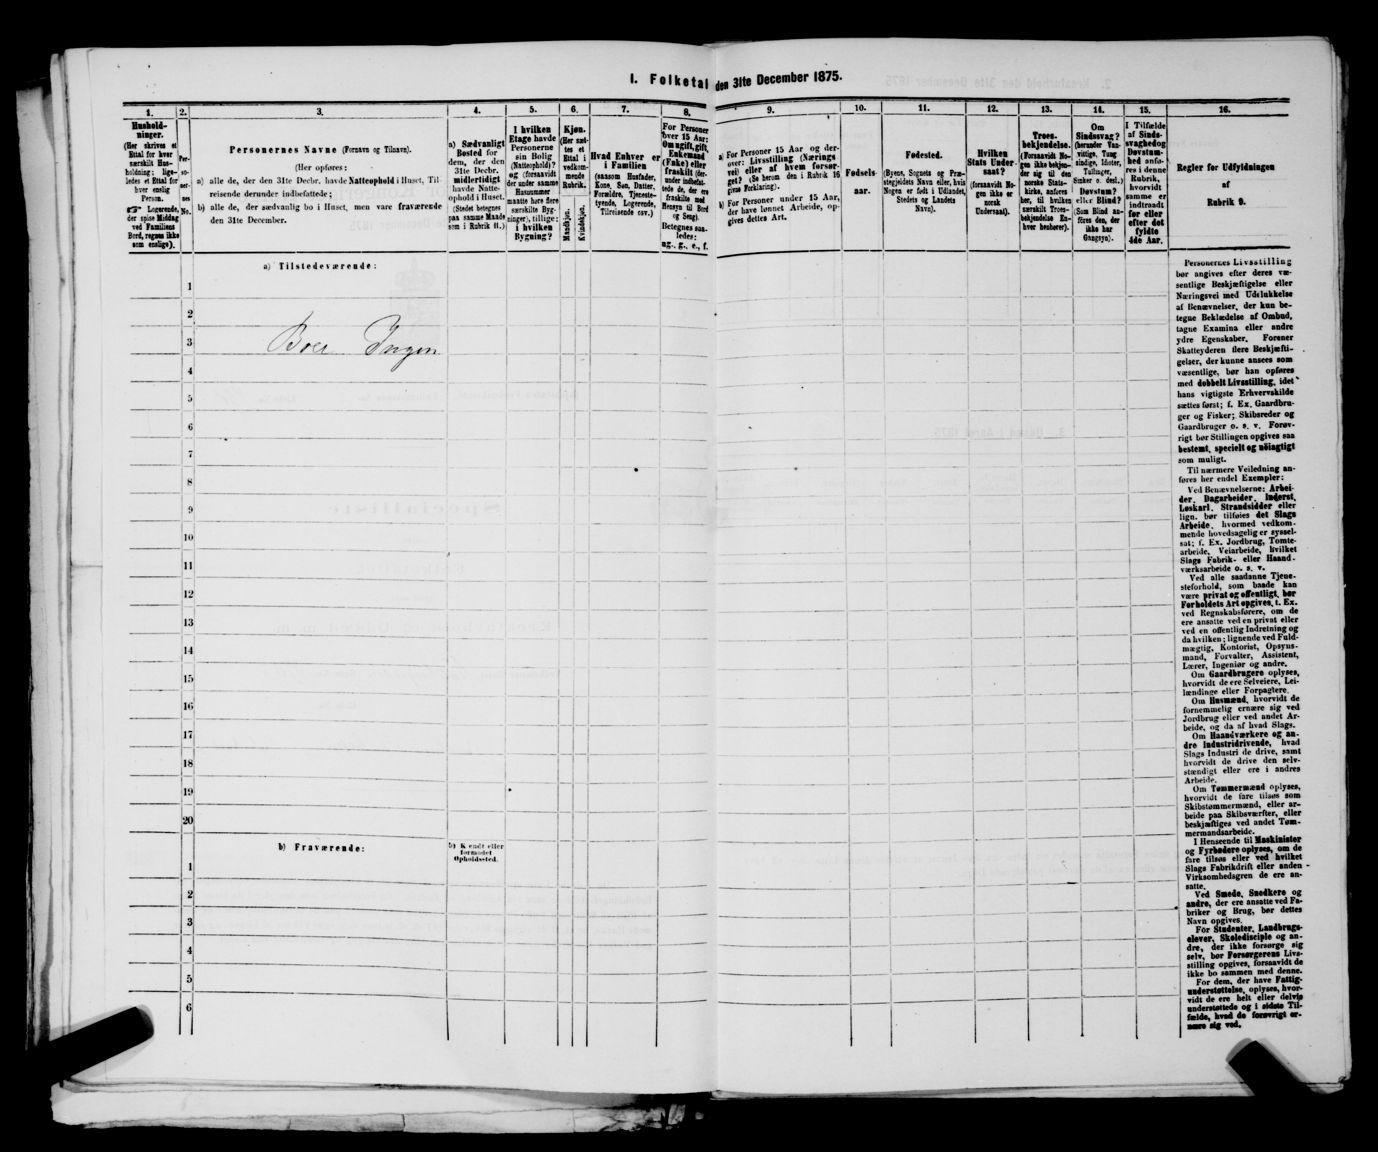 I. Folketal den 31te December 1875.
1.
Hushold-
ninger.
(Her skrives et
Ettal for hver
særskilt Hus-
holdning; lige-
ledes et Ettal for
hver enslig
Person.
☞ Logerende,
der spise Middag
ved Familiens
Bord, regnes ikke
som enslige).
2.
Per-
so-
ner-
nes
No.
3.
Personernes Navne (Fornavn og Tilnavn).
(Her opføres:
a) alle de, der den 31te Decbr. havde Natteophold i Huset, Til-
reisende derunder indbefattede;
b) alle de, der sædvanlig bo i Huset, men vare fraværende
den 31te December.
4.
a) Sædvanligt
Bosted for
dem, der den
31te Decbr.
midlertidigt
havde Natte-
ophold i Huset.
(Stedet betegnes
paa samme Maade
som i Rubrik 11.)
5.
I hvilken
Etage havde
Personerne
sin Bolig
(Natteophold)?
og (forsaavidt
der under samme
Husnummer
maatte høre flere
særskilte Byg-
ninger), tillige:
i hvilken
Bygning?
6.
Kjøn.
(Her sæt-
tes et
Ettal i
vedkom-
mende
Rubrik.
Mandkjøn.
Kvindekjøn.
7.
Hvad Enhver er
i Familien
(saasom Husfader,
Kone, Søn, Datter,
Forældre, Tjeneste-
tyende, Logerende,
Tilreisende osv.)
8.
For Personer
over 15 Aar:
Om ugift, gift,
Enkemand
(Enke) eller
fraskilt (der-
under indbefat-
tede de, der ere
fraskilte med
Hensyn til Bord
og Seng).
Betegnes saa-
ledes:
ug., g., e., f.
9.
a) For Personer 15 Aar og der-
over: Livsstilling (Nærings
vei) eller af hvem forsør-
get? (Se herom den i Rubrik 16
givne Forklaring).
b) For Personer under 15 Aar,
der have lønnet Arbeide, op-
gives dettes Art.
10.
Fødsels-
aar.
11.
Fødested.
(Byens, Sognets og Præ-
stegjeldets Navn eller, hvis
Nogen er født i Udlandet,
Stedets og Landets
Navn).
12.
Hvilken
Stats Under-
saat?
(forsaavidt No-
gen ikke er
norsk
Undersaat).
13.
Troes-
bekjendelse.
(Forsaavidt No-
gen ikke bekjen-
der sig til den
norske Stats-
kirke, anføres
her, til hvilken
særskilt Troes-
bekjendelse En-
hver henhører).
14.
Om
Sindssvag?
(herunder Van-
vittige, Tung
sindige, Idioter,
Tullinger,
Sinker o. desl.)
Døvstum?
eller Blind?
(Som Blind an-
føres den, der
ikke har
Gangsyn).
15.
I Tilfælde
af Sinds-
svaghed og
Døvstum-
hed anfø-
res i denne
Rubrik,
hvorvidt
samme er
indtraadt
før eller
efter det
fyldte
4de Aar.
16.
Regler for Udfyldningen
af
Rubrik 9.
a) Tilstedeværende:
1
2
3 Boer Ingen
4
5
6
7
8
9
10
11
12
13
14
15
16
17
18
19
20
b) Fraværende:
b) Kjendt eller
formodet
Opholdssted.
1
2
3
4
5
6
Personernes Livsstilling
bør angives efter deres væ-
sentlige Beskjæftigelse eller
Næringsvei med Udelukkelse
af Benævnelser, der kun be-
tegne Beklædelse af Ombud,
tagne Examina eller andre
ydre Egenskaber. Forener
Skatteyderen flere Beskjæfti-
gelser, der kunne ansees som
væsentlige, bør han opføres
med dobbelt Livsstilling, idet
hans vigtigste Erhvervskilde
sættes først; f. Ex. Gaardbru-
ger og Fisker; Skibsreder og
Gaardbruger o. s. v. Forøv-
rigt bør Stillingen opgives saa
bestemt, specielt og nøiagtigt
som muligt.
Til nærmere Veiledning an-
føres her endel Exempler:
Ved Benævnelserne: Arbei-
der, Dagarbeider, Inderst,
Løskarl, Strandsidder eller
lign. bør tilføies det Slags
Arbeide, hvormed vedkom-
mende hovedsagelig er syssel-
sat; f. Ex. Jordbrug, Tomte-
arbeide, Veiarbeide, hvilket
Slags Fabrik- eller Haand-
værksarbeide o. s. v.
Ved alle saadanne Tjene-
steforhold, som baade kan
være privat og offentligt, bør
Forholdets Art opgives, t. Ex.
ved Regnskabsførere, om de
ere ansatte ved en privat eller
ved en offentlig Indretning og
da hvilken; lignende ved Fuld-
mægtig, Kontorist, Opsyns-
mand, Forvalter, Assistent,
Lærer, Ingeniør og andre.
Om Gaardbrugere oplyses,
hvorvidt de ere Selveiere, Lei-
lændinge eller Forpagtere.
Om Husmænd, hvorvidt de
fornemmelig ernære sig ved
Jordbrug eller ved andet Ar-
beide, og da af hvad Slags.
Om Haandværkere og an-
dre Industridrivende, hvad
Slags Industri de drive, samt
hvorvidt de drive den selv-
stændigt eller ere i andres
Arbeide.
Om Tømmermænd oplyses,
hvorvidt de fare tilsøs som
Skibstømmermænd, eller ar-
beide paa Skibsværfter, eller
beskjæftiges ved andet Tøm-
mermandsarbeide.
I Henseende til Maskinister
og Fyrbødere oplyses, om de
fare tilsøs eller ved hvilket
Slags Fabrikdrift eller anden
Virksomhedsgren de ere an-
satte.
Ved Smede, Snedkere og
andre, der ere ansatte ved Fa-
briker og Brug, bør dettes
Navn opgives.
For Studenter, Landbrugs-
elever, Skoledisciple og an-
dre, der ikke forsørge sig
selv, bør Forsørgerens Livs-
stilling opgives, forsaavidt de
ikke bo sammen med denne.
For dem, der have Fattig-
understøttelse, oplyses, hvor-
vidt de ere helt eller delvis
understøttede og i sidste Til-
fælde, hvad de forøvrigt er-
nære sig ved.